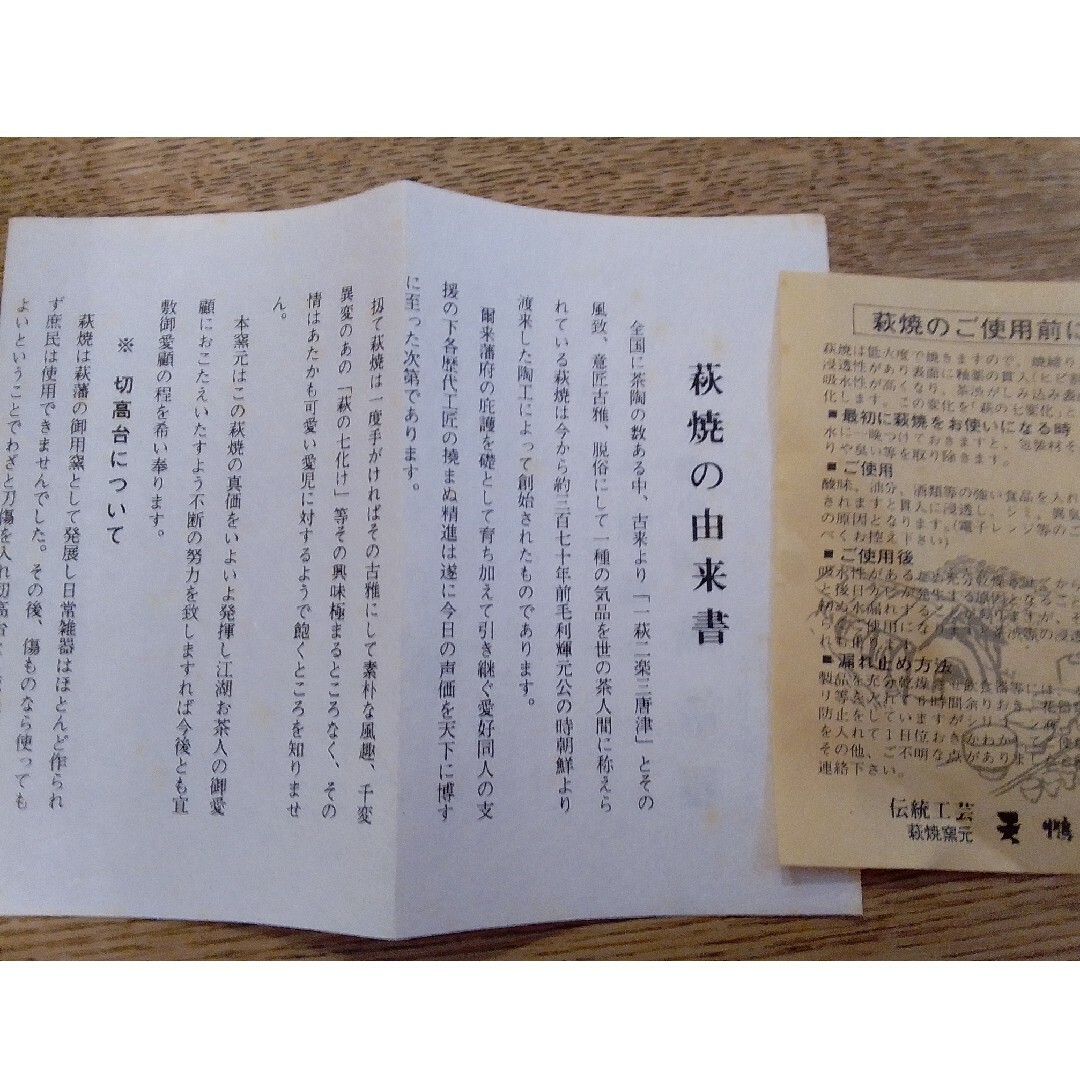 萩焼の由来書
全国に茶陶の数ある中、古来より「一萩二楽三唐津」とその
風致、意匠古雅、脱俗にして一種の気品を世の茶人間に称えら
れている萩焼は今から約三百七十年前毛利輝元公の時朝鮮より
渡来した陶工によって創始されたものであります。
爾来藩府の庇護を礎として育ち加えて引き継ぐ愛好同人の支
援の下各歴代工匠の撓まぬ精進は遂に今日の声価を天下に博す
に至った次第であります。
扨て萩焼は一度手がければその古雅にして素朴な風趣、千変
異変のあの「萩の七化け」等その興味極まるところなく、その
情はあたかも可愛い愛児に対するようで飽くところを知りませ
ん。
本窯元はこの萩焼の真価をいよいよ発揮し江湖お茶人の御愛
顧におこたえいたすよう不断の努力を致しますれば今後とも宜
敷御愛顧の程を希い奉ります。
※ 切高台について
萩焼は萩藩の御用窯として発展し日常雑器はほとんど作られ
ず庶民は使用できませんでした。その後、傷ものなら使っても
よいということでわざと刀傷を入れ切高台
萩焼のご使用前に
萩焼は低火度で焼きますので、焼締り
浸透性があり表面に釉薬の貫入(ヒビ
吸水性が高くなり、茶渋がしみ込み表
化します。この変化を「萩の七変化」と
■最初に萩焼をお使いになる時
水に一晩つけておきますと、包装材そ
りや臭い等を取り除きます。
■ご使用
酸味、油分、酒類等の強い食品を入れ
されますと貫入に浸透し、シミ、異臭
の原因となります。(電子レンジ等のご
べくお控え下さい)
■ご使用後
吸水性があるため充分乾燥させてから
と後日カビが発生する原因となること
初め水漏れする
ご使用になり
れも止
■漏れ止め方法
製品を充分乾燥させ飲食器等には、
リ等を入れて6時間余りおき、花器
防止をしていますがシリコン液
を入れて1日位おきかわかして使
その他、ご不明な点がありましたら
連絡下さい。
伝統工芸
萩焼窯元 天